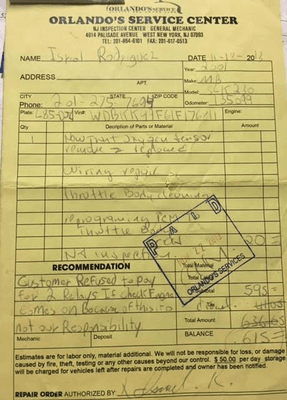 ORLANDO'S SERVICE
ORLANDO'S SERVICE CENTER
NJ INSPECTION CENTER GENERAL MECHANIC
4014 PALISADE AVENUE WEST NEW YORK, NJ 07093
TEL: 201-864-6101 FAX: 201-617-0513
NAME Rodriguez DATE
ADDRESS Year 2001
APT. Make MB
CITY STATE ZIP CODE Model
Phone: Odometer:
Plate: Vin#: Engine:
Qty. Decription of Parts or Material Amount
New Front Oxygen sensor
remove & replaced
Wiring repair
throttle Body cleaning
reprograming PCM
throttle Body
NJ inspection 20=
PAID
ORLANDO'S SERVICES
RECOMMENDATION
Customer Refused to pay
for 2 Relays If check Engine 595=
comes on Because of this its
not our Responsibility Total Amount
Mechanic Deposit BALANCE 615=
Estimates are for labor only, material additional. We will not be responsible for loss, damage
caused by fire, theft, testing or any other causes beyond our control. $ 50.00 per day storage
will be charged for vehicles left after repairs are completed and owner has been notified.
REPAIR ORDER AUTHORIZED BY: